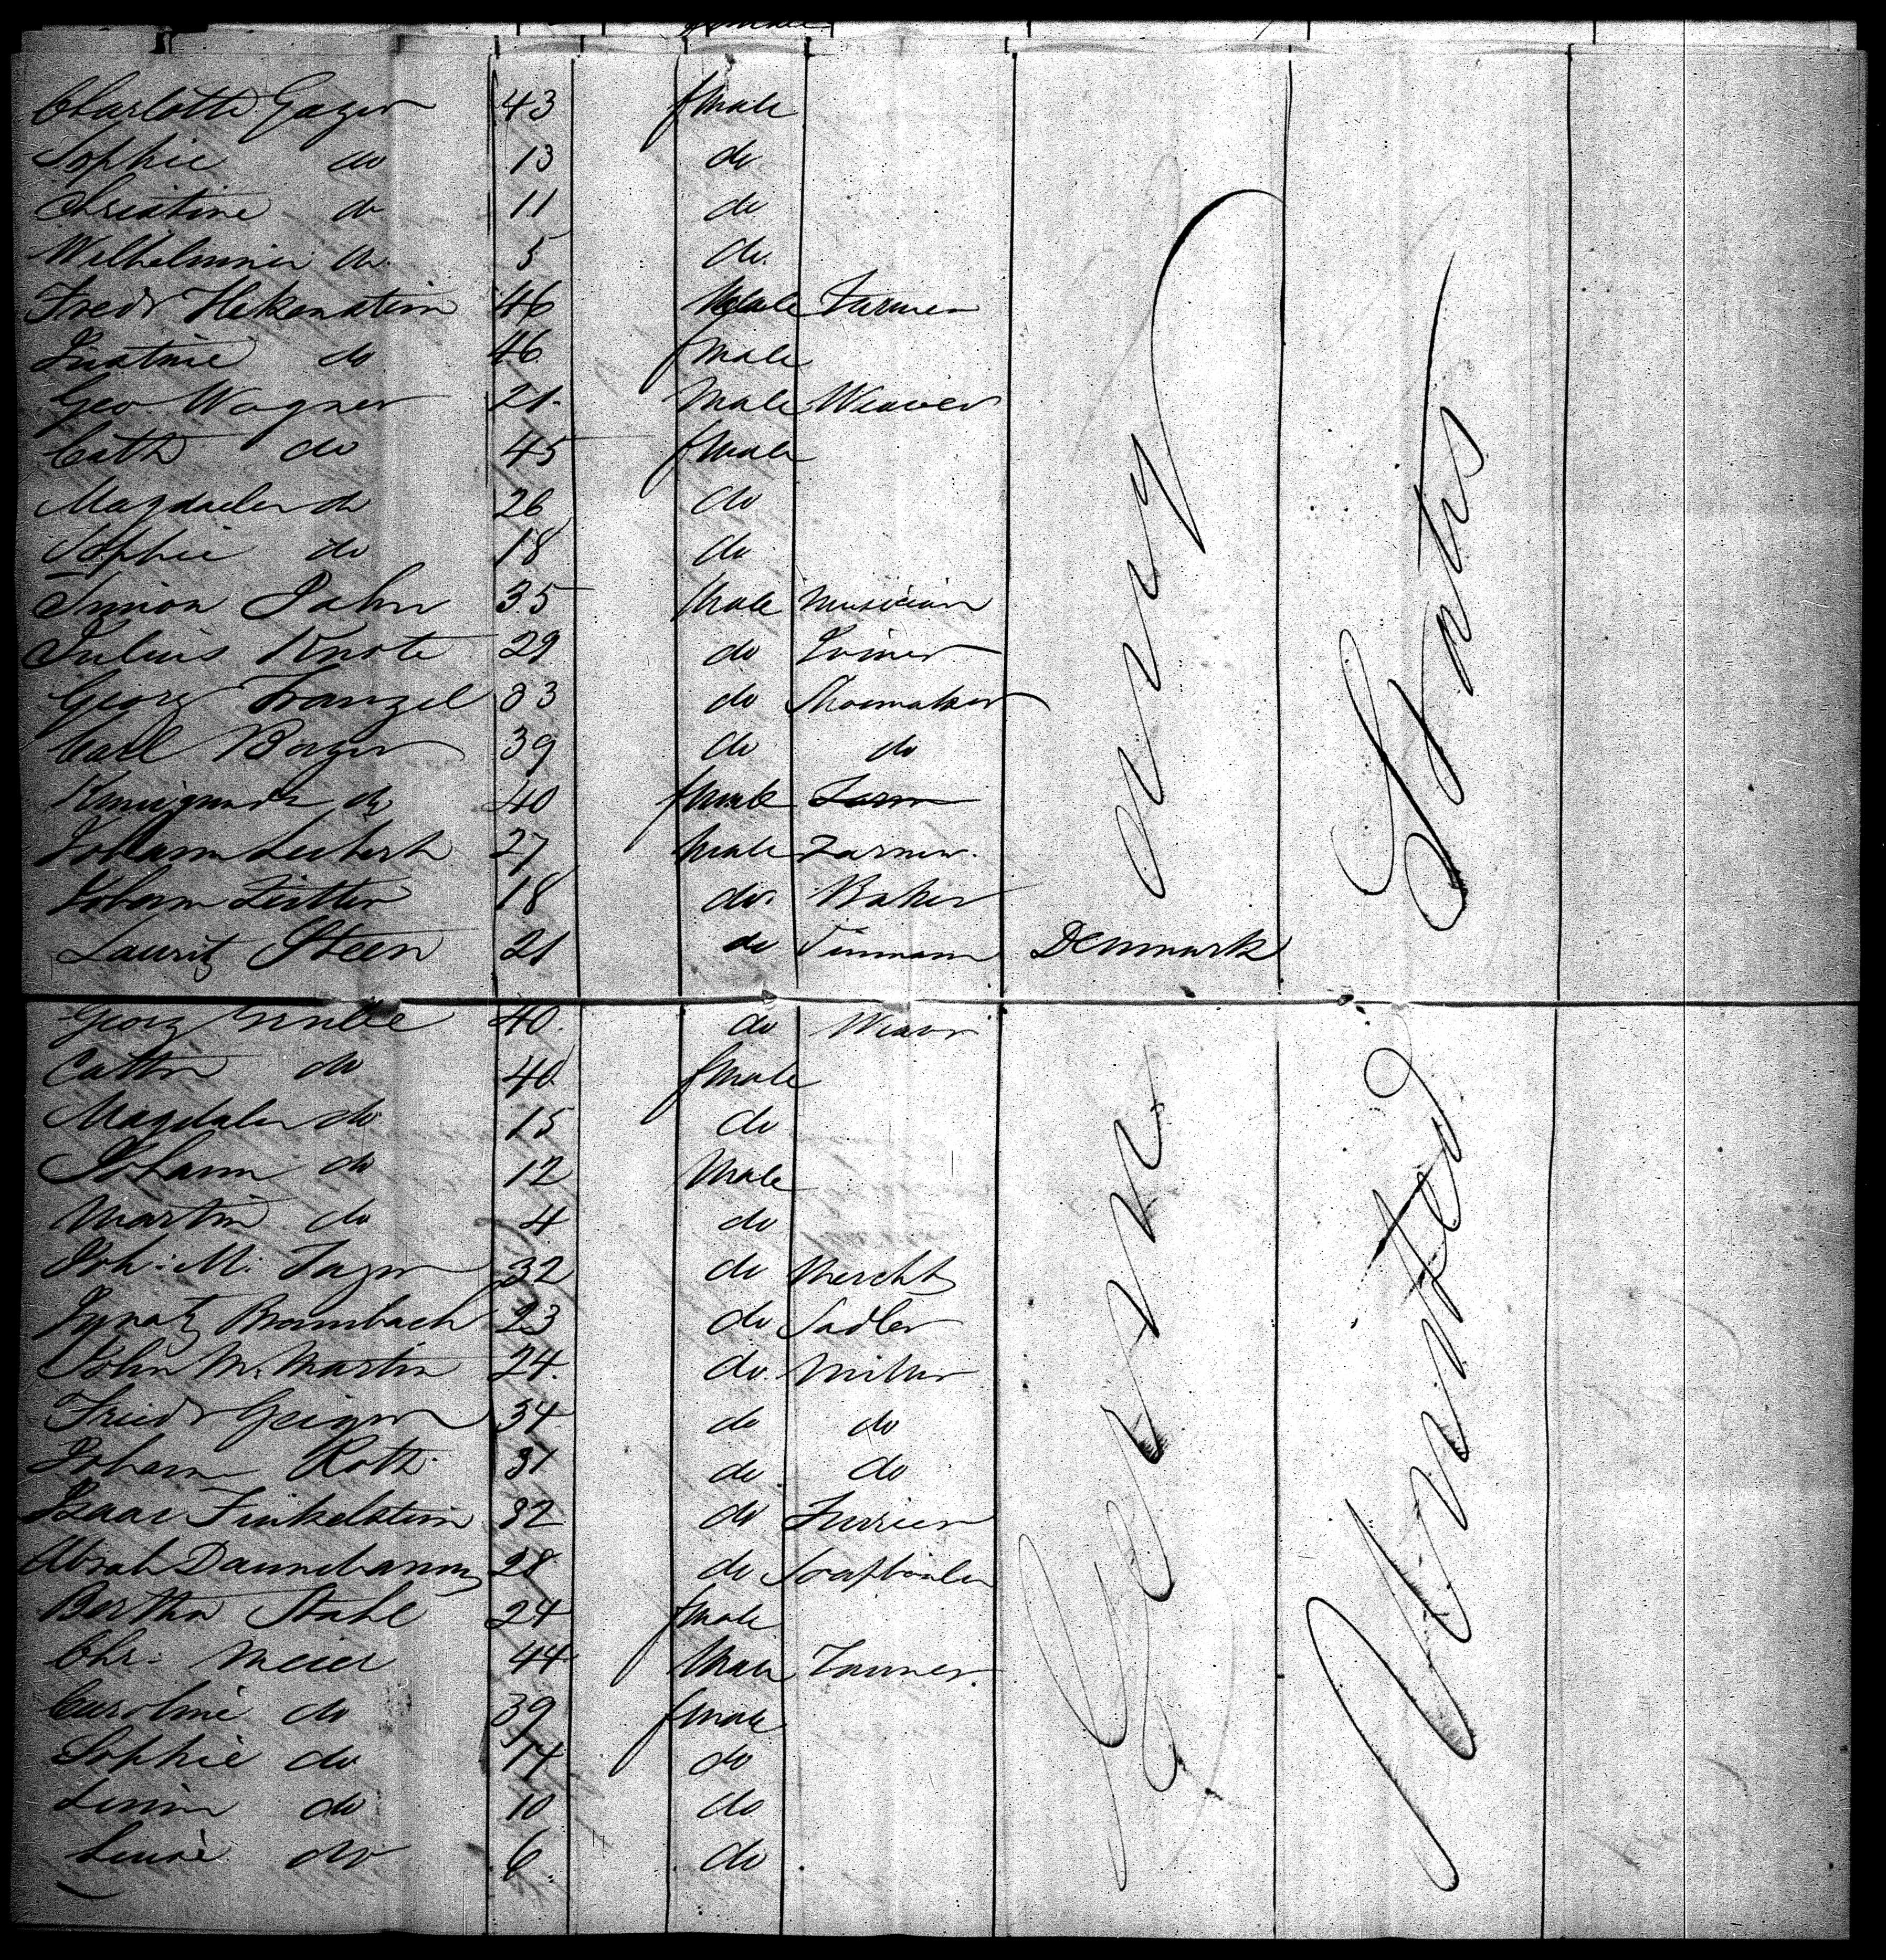 Charlotte Gazer 43 female
Sophie do 13 do
Christine do 11 do
Wilhelmine do 5 do
Fredr Hekenstein 46 Male Farmer
Justine do 46 female
Geo Wagner 21 Male Weaver
Cath do 45 female
Magdalen do 26 do
Sophie do 18 do
Simon Jahn 35 Male Musician
Julius Knote 29 do Joiner
Georg Franzel 33 do Shoemaker
Carl Berger 39 do do
do 40 female Farm
Johann 27 Male Farmer
Johann 18 do Baker
Lauritz Steen 21 do Tinmann Denmark
Georg 40 do Weaver
Cathn do 40 female
Magdalen do 15 do
Johann do 12 Male
Martin do 4 do
Joh: M. 32 do Mercht
Ignatz Brombach 23 do Sadler
John M. Martin 24 do Miller
Friedr Geiger 34 do do
Johann Roth 31 do do
Isaac Finkelstein 32 do Furrier
Abrah Dannebaum 28 do Soapboiler
Bertha Stahl 24 female
Chr. Meier 44 Male Farmer
Caroline do 39 female
Sophie do 14 do
do 10 do
Louise do 6 do
Germany
United States